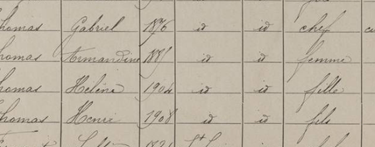 Thomas Gabriel 1876 id id chef
Thomas Armandine 1881 id id femme
Thomas Hélène 1904 id id fille
Thomas Henri 1908 id id fils